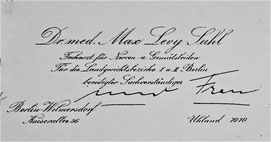 Dr. med. Max Levy Suhl
Facharzt für Nerven- u. Gemütsleiden
Für die Landgerichtsbezirke I u. II Berlin
beeidigter Sachverständiger
und Frau
Berlin-Wilmersdorf
Kaiserallee 56
Uhland 7070